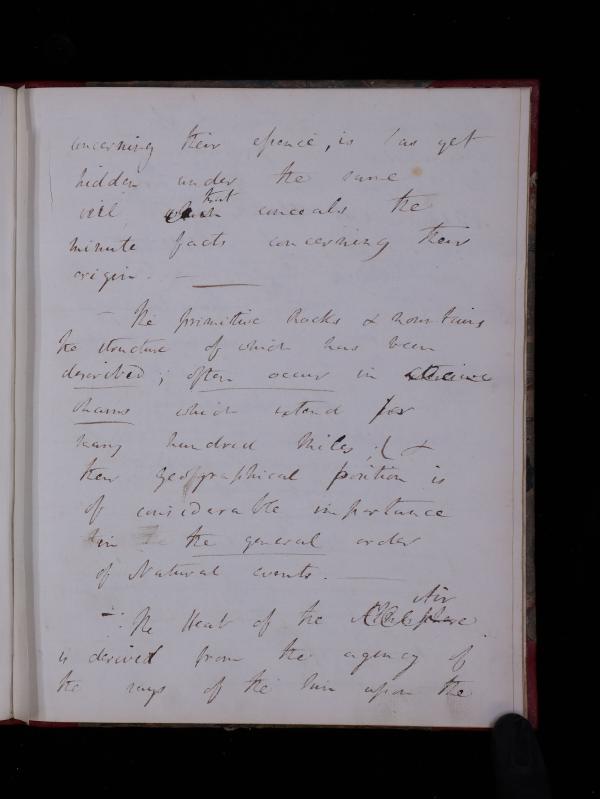 concerning their epocié, is / as yet
hidden under the same
veil which that conceals the
minute facts concerning their
origin. —
— The primitive Rocks & mountains
the structure of which has been
described; often occur in
chains which extend for
many hundred Miles; ( &
their geographical position is
of considerable importance
in the general order
of Natural events. —
—: The Heat of the Air
is derived from the agency of
the rays of the Sun upon the